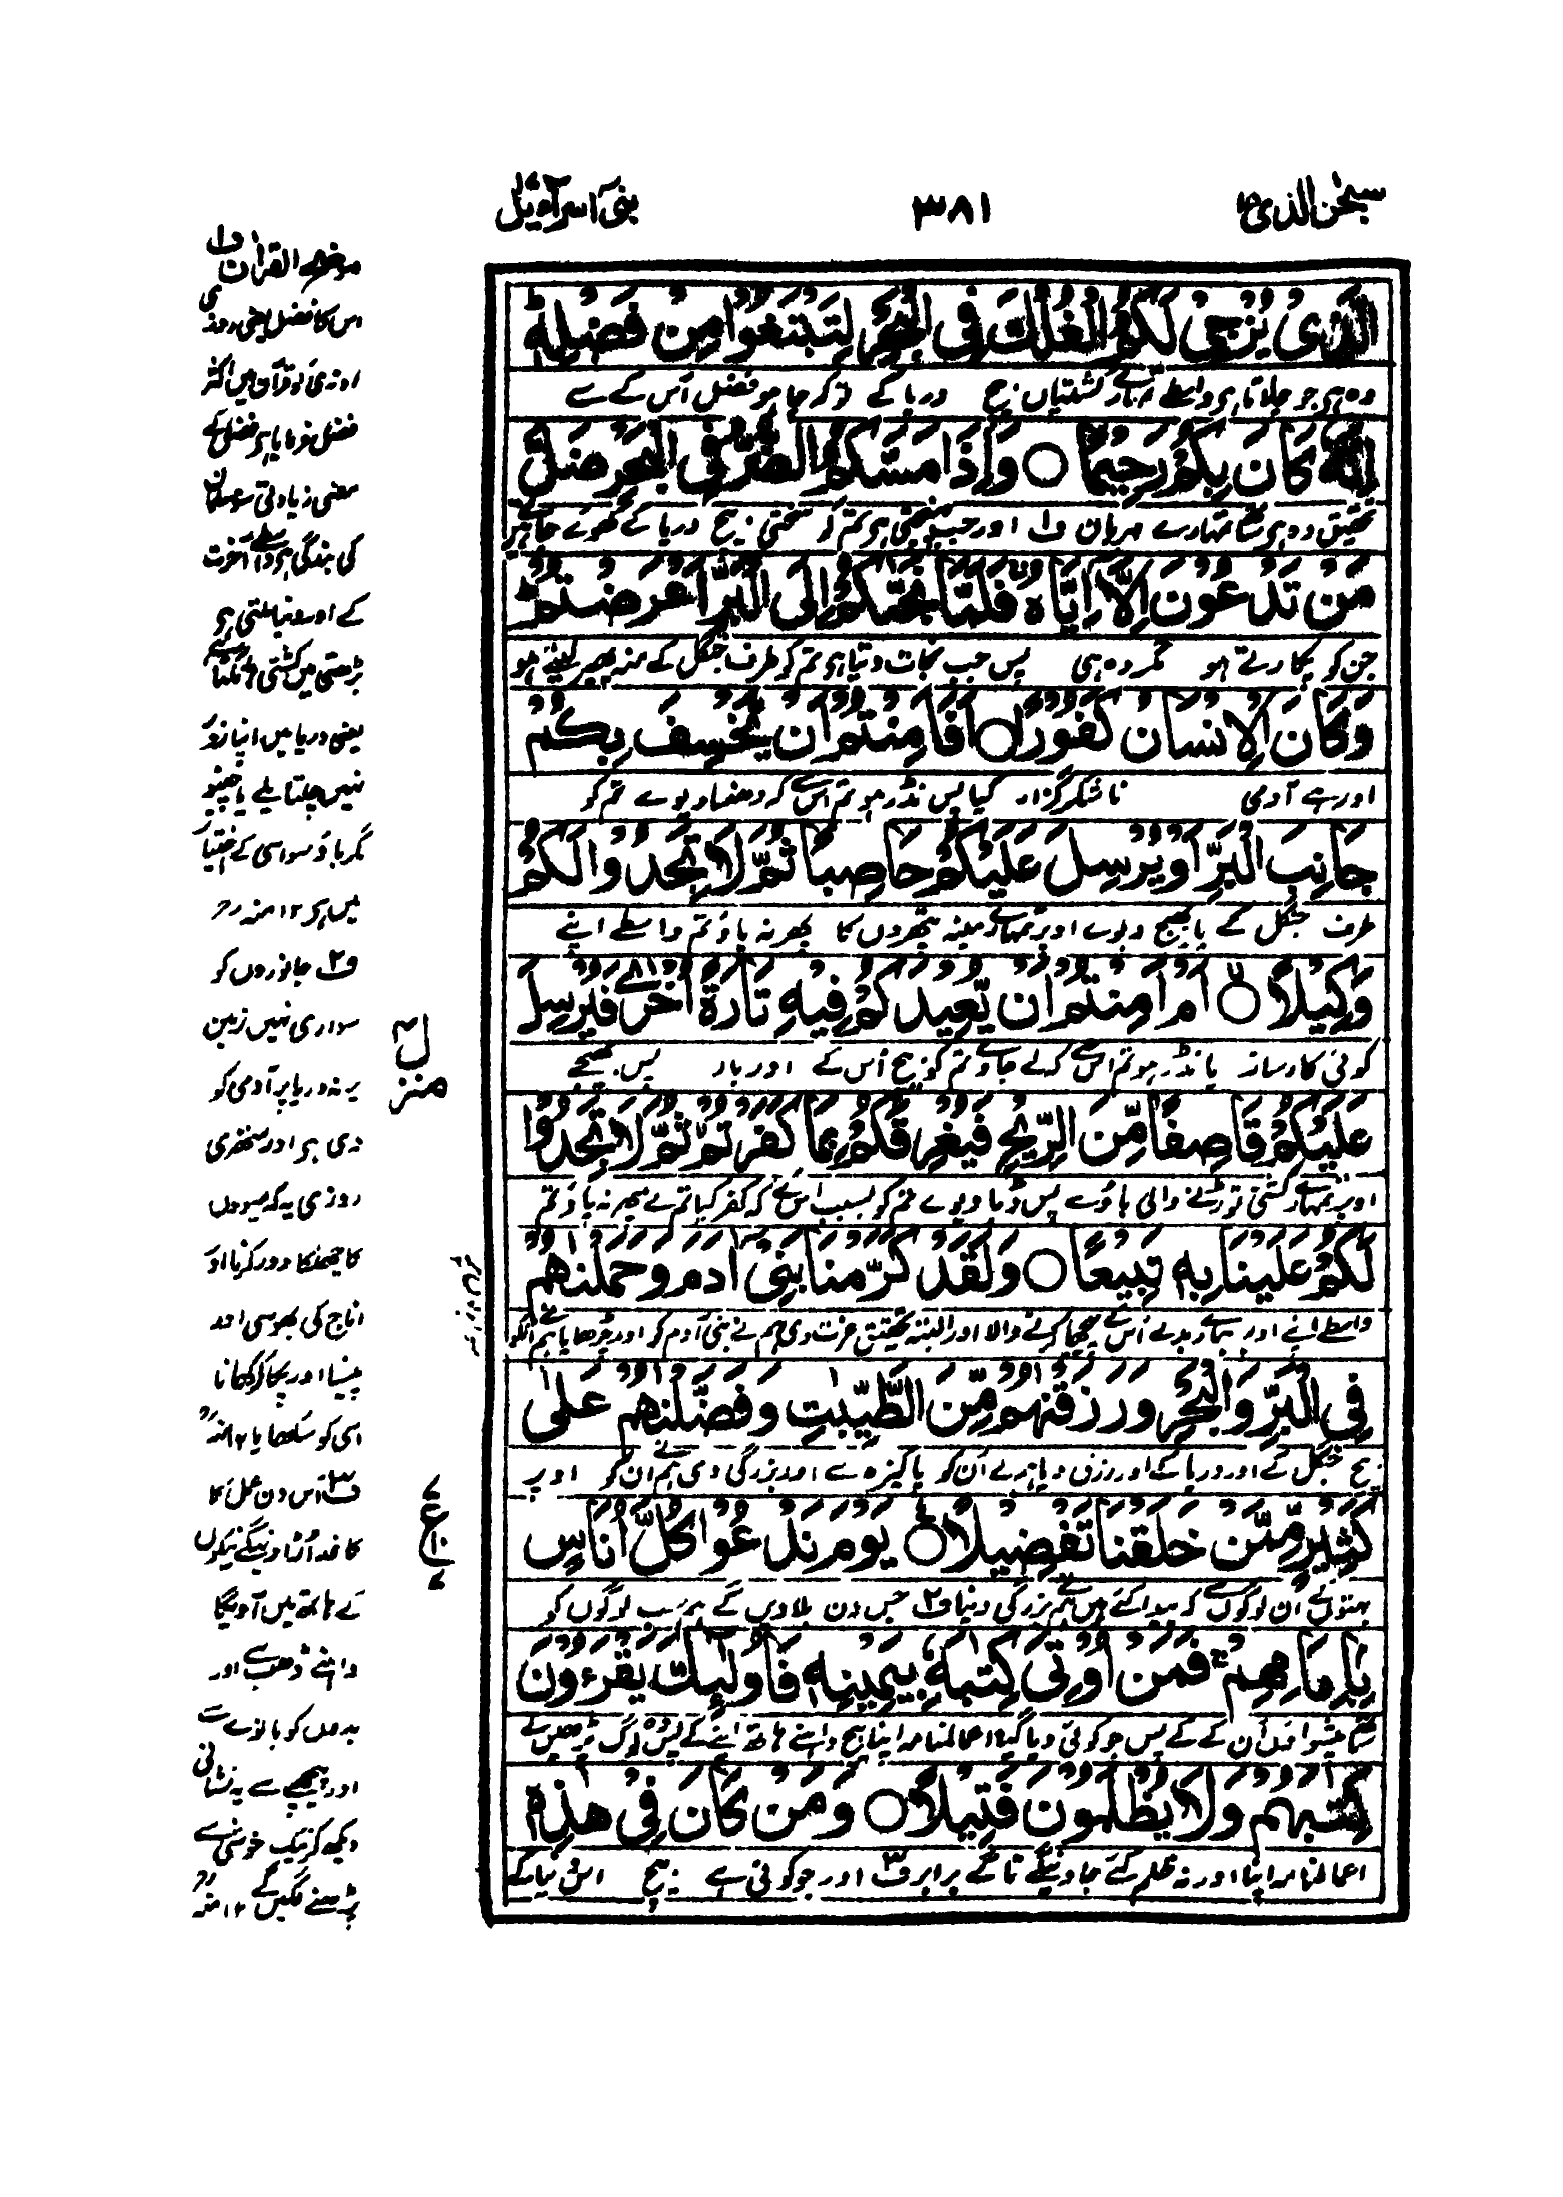 سبحٰن الذی ۱۵
۳۸۱
بنیۤ اسرآءیل ۱۷
الَّذِیْ یُزْجِیْ لَكُمُ الْفُلْكَ فِی الْبَحْرِ لِتَبْتَغُوْا مِنْ فَضْلِهٖؕ
وہ ہی جو چلاتا ہی واسطے تمہارے کشتیاں بیچ دریا کے تو کہ چاہو فضل اُس کے سے
اِنَّهٗ كَانَ بِكُمْ رَحِیْمًا ○ وَاِذَا مَسَّكُمُ الضُّرُّ فِی الْبَحْرِ ضَلَّ
تحقیق وہ ہی ساتھ تمہارے مہربان ف۱ اور جب پہنچتی ہی تم کو سختی بیچ دریا کے کھوئے جاتے ہیں
مَنْ تَدْعُوْنَ اِلَّاۤ اِیَّاهُ فَلَمَّا نَجّٰىكُمْ اِلَى الْبَرِّ اَعْرَضْتُمْؕ
جن کو پکارتے ہو مگر وہ ہی پس جب نجات دیتا ہی تم کو طرف جنگل کے منہ پھیر لیتے ہو
وَكَانَ الْاِنْسَانُ كَفُوْرًا ○ اَفَاَمِنْتُمْ اَنْ یَّخْسِفَ بِكُمْ
اور ہے آدمی ناشکر گزار کیا پس نڈر ہو تم اس سے کہ دھنسا دیوے تم کو
جَانِبَ الْبَرِّ اَوْ یُرْسِلَ عَلَیْكُمْ حَاصِبًا ثُمَّ لَا تَجِدُوْا لَكُمْ
طرف جنگل کے یا بھیج دیوے اوپر تمہارے مینہ پتھروں کا پھر نہ پاؤ تم واسطے اپنے
وَكِیْلًا ○ اَمْ اَمِنْتُمْ اَنْ یُّعِیْدَكُمْ فِیْهِ تَارَةً اُخْرٰى فَیُرْسِلَ
کوئی کارساز یا نڈر ہو تم اس سے کہ لے جاوے تم کو بیچ اُس کے اور بار پس بھیجے
عَلَیْكُمْ قَاصِفًا مِّنَ الرِّیْحِ فَیُغْرِقَكُمْ بِمَا كَفَرْتُمْ ثُمَّ لَا تَجِدُوْا
اوپر تمہارے کشتی توڑنے والی باؤ سے پس ڈبا دیوے تم کو بسبب اس کے کہ کفر کیا تم نے پھر نہ پاؤ تم
لَكُمْ عَلَیْنَا بِهٖ تَبِیْعًا ○ وَلَقَدْ كَرَّمْنَا بَنِیْۤ اٰدَمَ وَحَمَلْنٰهُمْ
واسطے اپنے اوپر ہمارے بدلے اُس کے پیچھا کرنے والا اور البتہ تحقیق عزت دی ہم نے بنی آدم کو اور چڑھایا ہم نے انکو
فِی الْبَرِّ وَالْبَحْرِ وَرَزَقْنٰهُمْ مِّنَ الطَّیِّبٰتِ وَفَضَّلْنٰهُمْ عَلٰى
بیچ جنگل کے اور دریا کے اور رزق دیا ہم نے اُن کو پاکیزہ سے اور بزرگی دی ہم نے ان کو اوپر
كَثِیْرٍ مِّمَّنْ خَلَقْنَا تَفْضِیْلًا ○ یَوْمَ نَدْعُوْا كُلَّ اُنَاسٍ
بہتوں کے اُن لوگوں سے کہ پیدا کئے ہیں ہم نے بزرگی دینا ف۲ جس دن بلاویں گے ہم سب لوگوں کو
بِاِمَامِهِمْ فَمَنْ اُوْتِیَ كِتٰبَهٗ بِیَمِیْنِهٖ فَاُولٰٓىِٕكَ یَقْرَءُوْنَ
ساتھ پیشواؤں اُن کے کے پس جو کوئی دیا گیا اعمالنامہ اپنا بیچ داہنے ہاتھ اپنے کے پس یہ لوگ پڑھیں گے
كِتٰبَهُمْ وَلَا یُظْلَمُوْنَ فَتِیْلًا ○ وَمَنْ كَانَ فِیْ هٰذِهٖۤ
اعمالنامہ اپنا اور نہ ظلم کئے جاوینگے تاگے برابر ف۳ اور جو کوئی ہے بیچ اس دنیا کے
موضح القرآن ف۱
اس کا فضل یعنی روزی
روزی کو قرآن میں اکثر
فضل فرمایا ہی فضل کے
معنی زیادتی سو مسلمان
کی بندگی ہی واسطے آخرت
کے اور دنیا ملتی ہی
بڑھتی میں کشتی ہانکتا ہی
یعنی دریا میں اپنا زور
نہیں چلتا پلے یا چپو
مگر باؤ سو اسی کے اختیار
میں ہی ۱۲ منہ رح
ف۲ جانوروں کو
سواری نہیں زمین
پر نہ دریا پر آدمی کو
دی ہی اور ستھری
روزی یہ کہ میووں
کا چھلکا دور کرنا اور
اناج کی بھوسی اور
پیسنا اور پکا کر کھانا
اسی کو سکھایا ۱۲ منہ رح
ف۳ اس دن عمل کا
کاغذ اُڑاوینگے نیکوں
کے ہاتھ میں آوے گا
داہنے ڈھب سے اور
بدوں کو بائیں سے
اور پیچھے سے یہ نشانی
دیکھ کر نیک خوشی سے
پڑھنے لگیں گے ۱۲ منہ رح
منزل ۴
ع